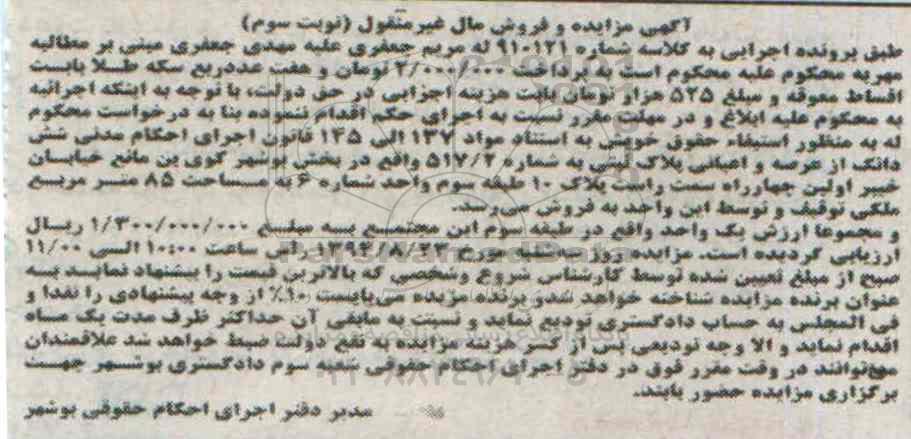 آگهی مزایده و فروش مال غیرمنقول (نوبت سوم)
طبق پرونده اجرایی به کلاسه شماره 910121 له مریم جعفری علیه مهدی جعفری مبنی بر مطالبه
مهریه محکوم علیه محکوم است به پرداخت 2/000/000 تومان و هفت عددربع سکه طلا بابت
اقساط معوقه و مبلغ 525 هزار تومان بابت هزینه اجرایی در حق دولت، با توجه به اینکه اجرائیه
به محکوم علیه ابلاغ و در مهلت مقرر نسبت به اجرای حکم اقدام ننموده بنا به درخواست محکوم
له به منظور استیفاء حقوق خویش به استناد مواد 137 الی 145 قانون اجرای احکام مدنی شش
دانگ از عرصه و اعیانی پلاک ثبتی به شماره 517/2 واقع در بخش بوشهر کوی بن مانع خیابان
خیبر اولین چهارراه سمت راست پلاک 10 طبقه سوم واحد شماره 6 به مساحت 85 متر مربع
ملکی توقیف و توسط این واحد به فروش می‌رسد.
و مجموعا ارزش یک واحد واقع در طبقه سوم این مجتمع به مبلغ 1/300/000/000 ریال
ارزیابی گردیده است. مزایده روز سه‌شنبه مورخ 1392/8/23 راس ساعت 10:00 الی 11/00
صبح از مبلغ تعیین شده توسط کارشناس شروع وشخصی که بالاترین قیمت را پیشنهاد نمایند به
عنوان برنده مزایده شناخته خواهد شدو برنده مزیده می‌بایست 10٪ از وجه پیشنهادی را نقدا و
فی المجلس به حساب دادگستری تودیع نماید و نسبت به مابقی آن حداکثر ظرف مدت یک ماه
اقدام نماید و الا وجه تودیعی پس از کسر هزینه مزایده به نفع دولت ضبط خواهد شد علاقمندان
می‌توانند در وقت مقرر فوق در دفتر اجرای احکام حقوقی شعبه سوم دادگستری بوشهر جهت
برگزاری مزایده حضور یابند.
مدیر دفتر اجرای احکام حقوقی بوشهر